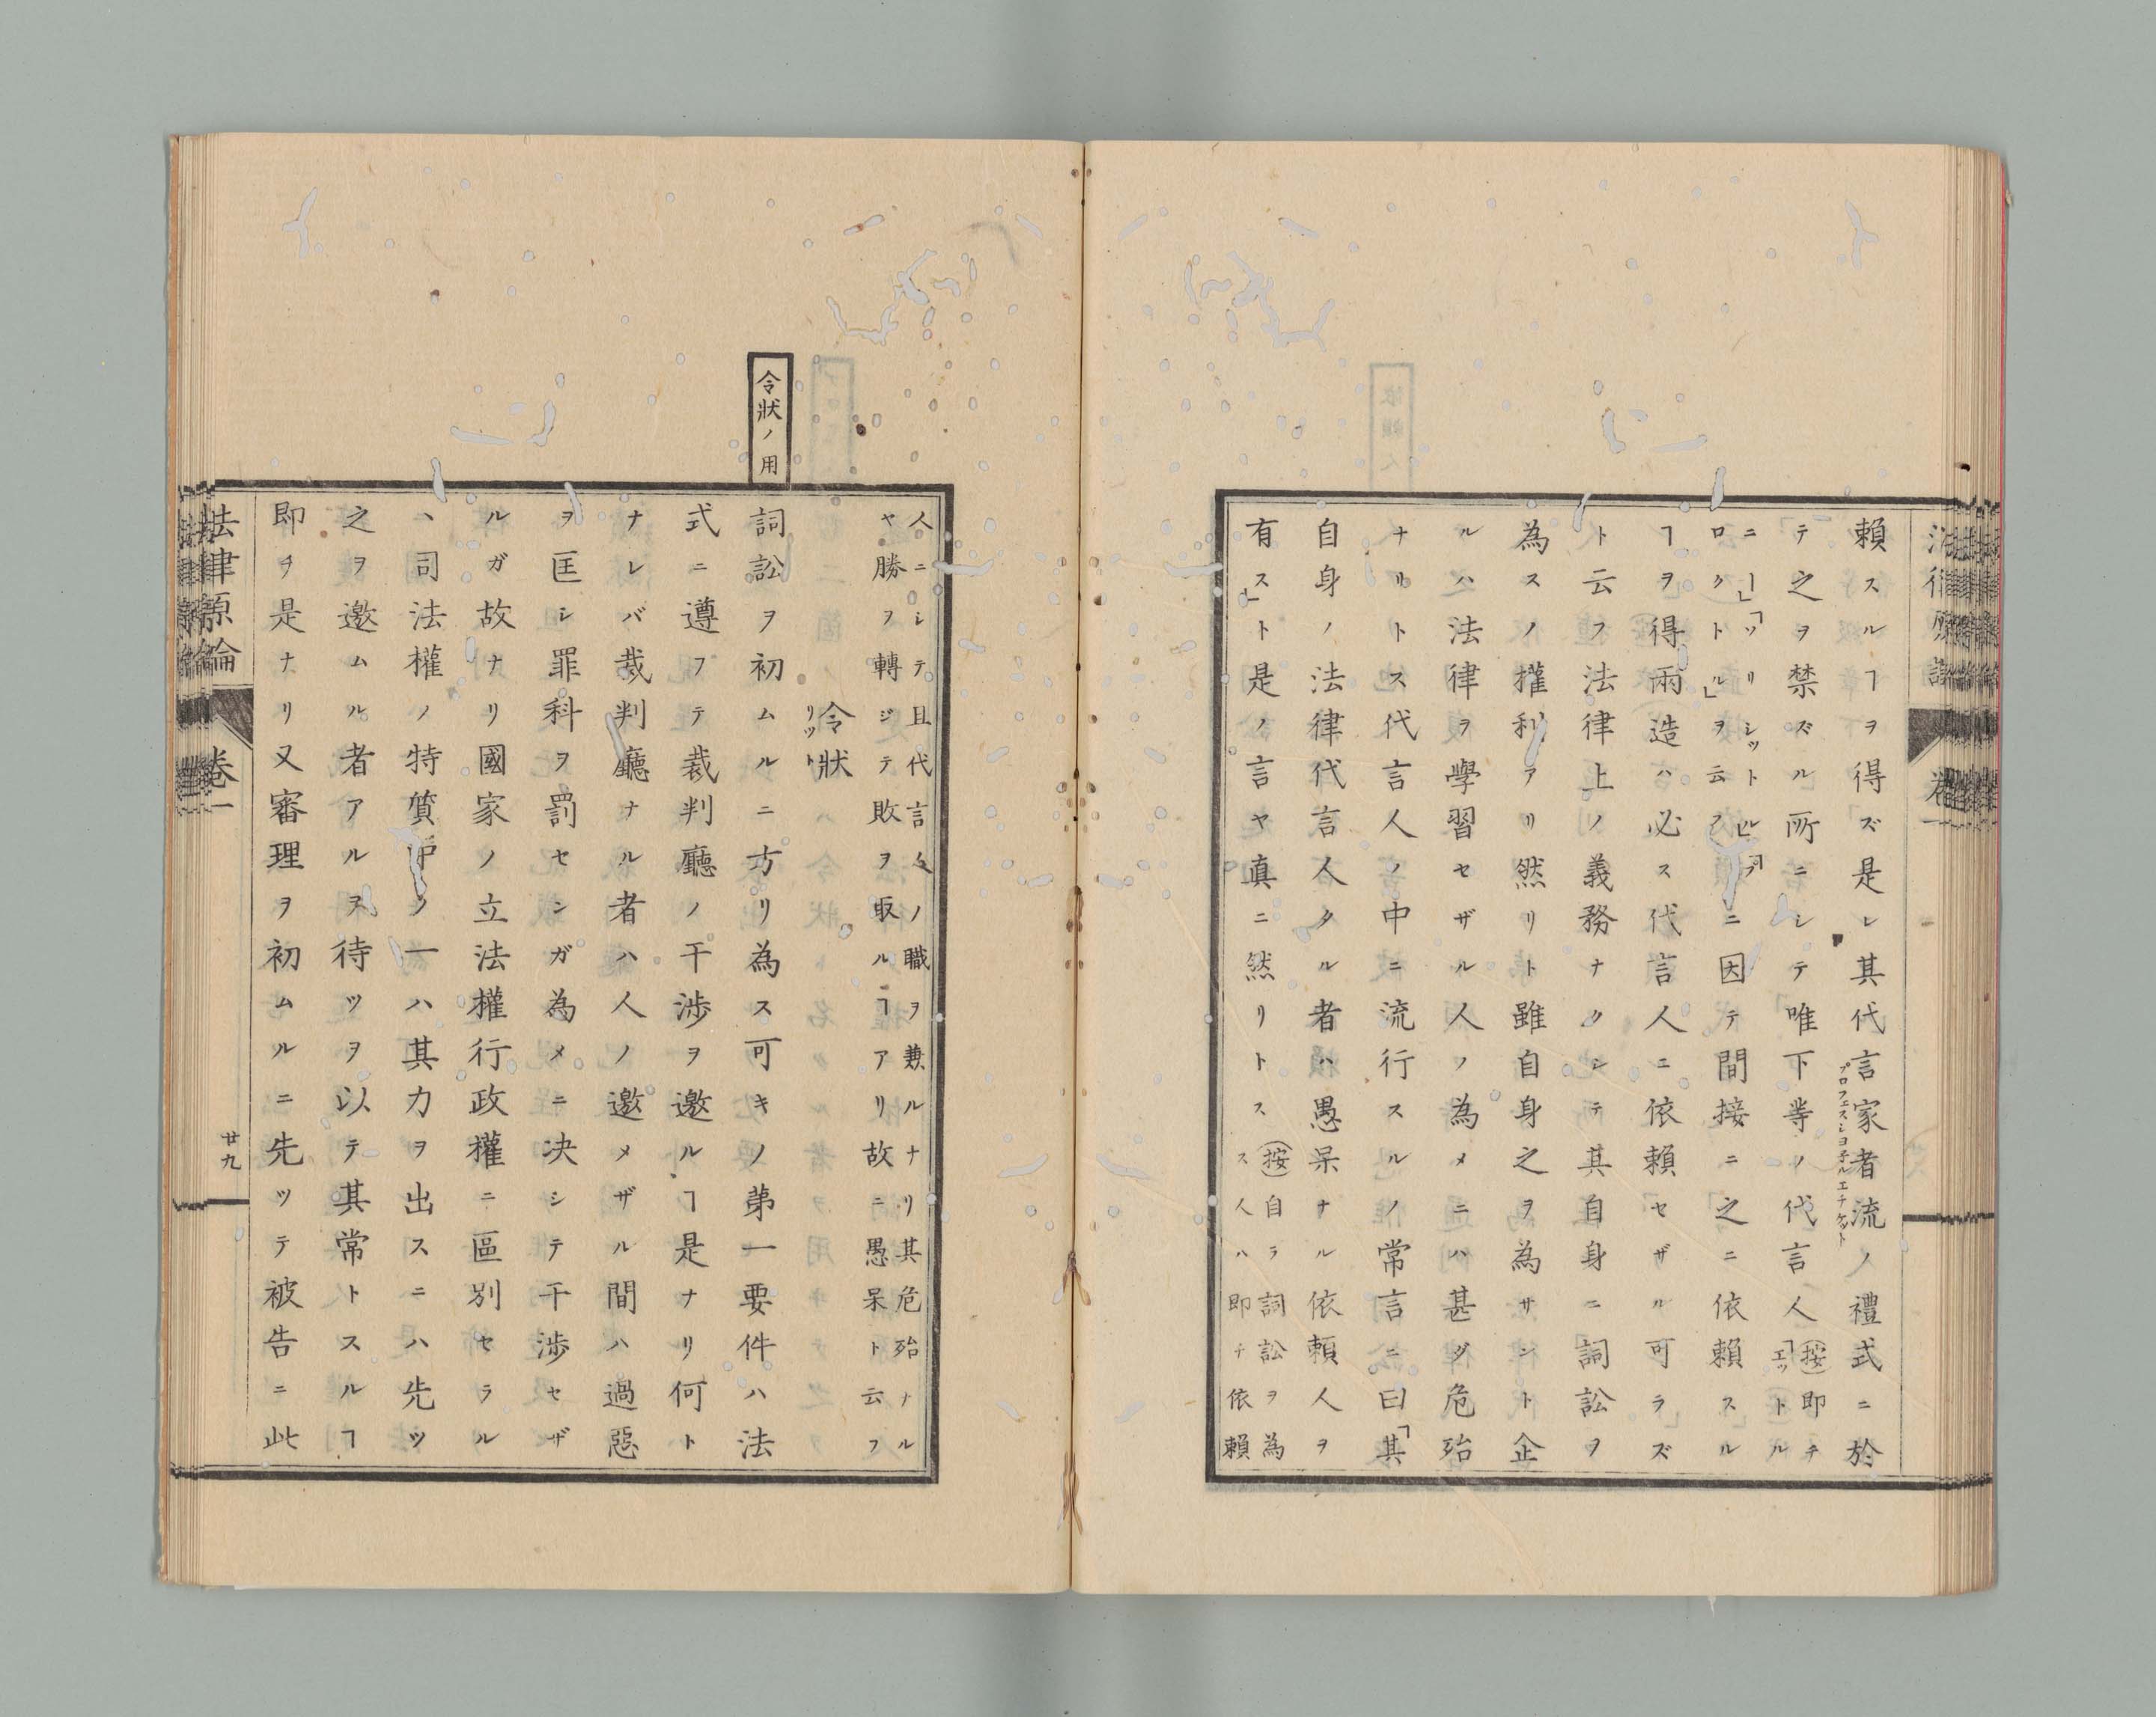 賴スルヿヲ得ズ是レ其代言家者流ノ禮式ニ於
プロフェスシヨネルエチケツト
テ之ヲ禁ズル所ニシテ唯下等ノ代言人(按)即チ「エットル
ニー」「ソリシットル」「プロクトル」ヲ云フニ因テ間接ニ之ニ依賴スル
ヿヲ得兩造ハ必ス代言人ニ依賴セザル可ラズ
ト云フ法律上ノ義務ナクシテ其自身ニ詞訟ヲ
為スノ權利アリ然リト雖自身之ヲ為サント企
ルハ法律ヲ學習セザル人ノ為メニハ甚ダ危殆
ナリトス代言人ノ中ニ流行スルノ常言ニ曰「其
自身ノ法律代言人タル者ハ愚呆ナル依賴人ヲ
有ス」ト是ノ言ヤ眞ニ然リトス(按)自ラ詞訟ヲ為ス人ハ即チ依賴
人ニシテ且代言人ノ職ヲ兼ルナリ其危殆ナル
ヤ勝ヲ轉ジテ敗ヲ取ルヿアリ故ニ愚呆ト云フ
令狀
リット
令狀ノ用
詞訟ヲ初ムルニ方リ為ス可キノ第一要件ハ法
式ニ遵フテ裁判廳ノ干渉ヲ邀ルヿ是ナリ何ト
ナレバ裁判廳ナル者ハ人ノ邀メザル間ハ過惡
ヲ匡シ罪科ヲ罰センガ為メニ决シテ干渉セザ
ルガ故ナリ國家ノ立法權行政權ニ區別セラル
ハ司法權ノ特質中ノ一ハ其力ヲ出スニハ先ツ
之ヲ邀ムル者アルヲ待ツヲ以テ其常トスルヿ
即チ是ナリ又審理ヲ初ムルニ先ツテ被告ニ此
法律原論
卷一
廿九